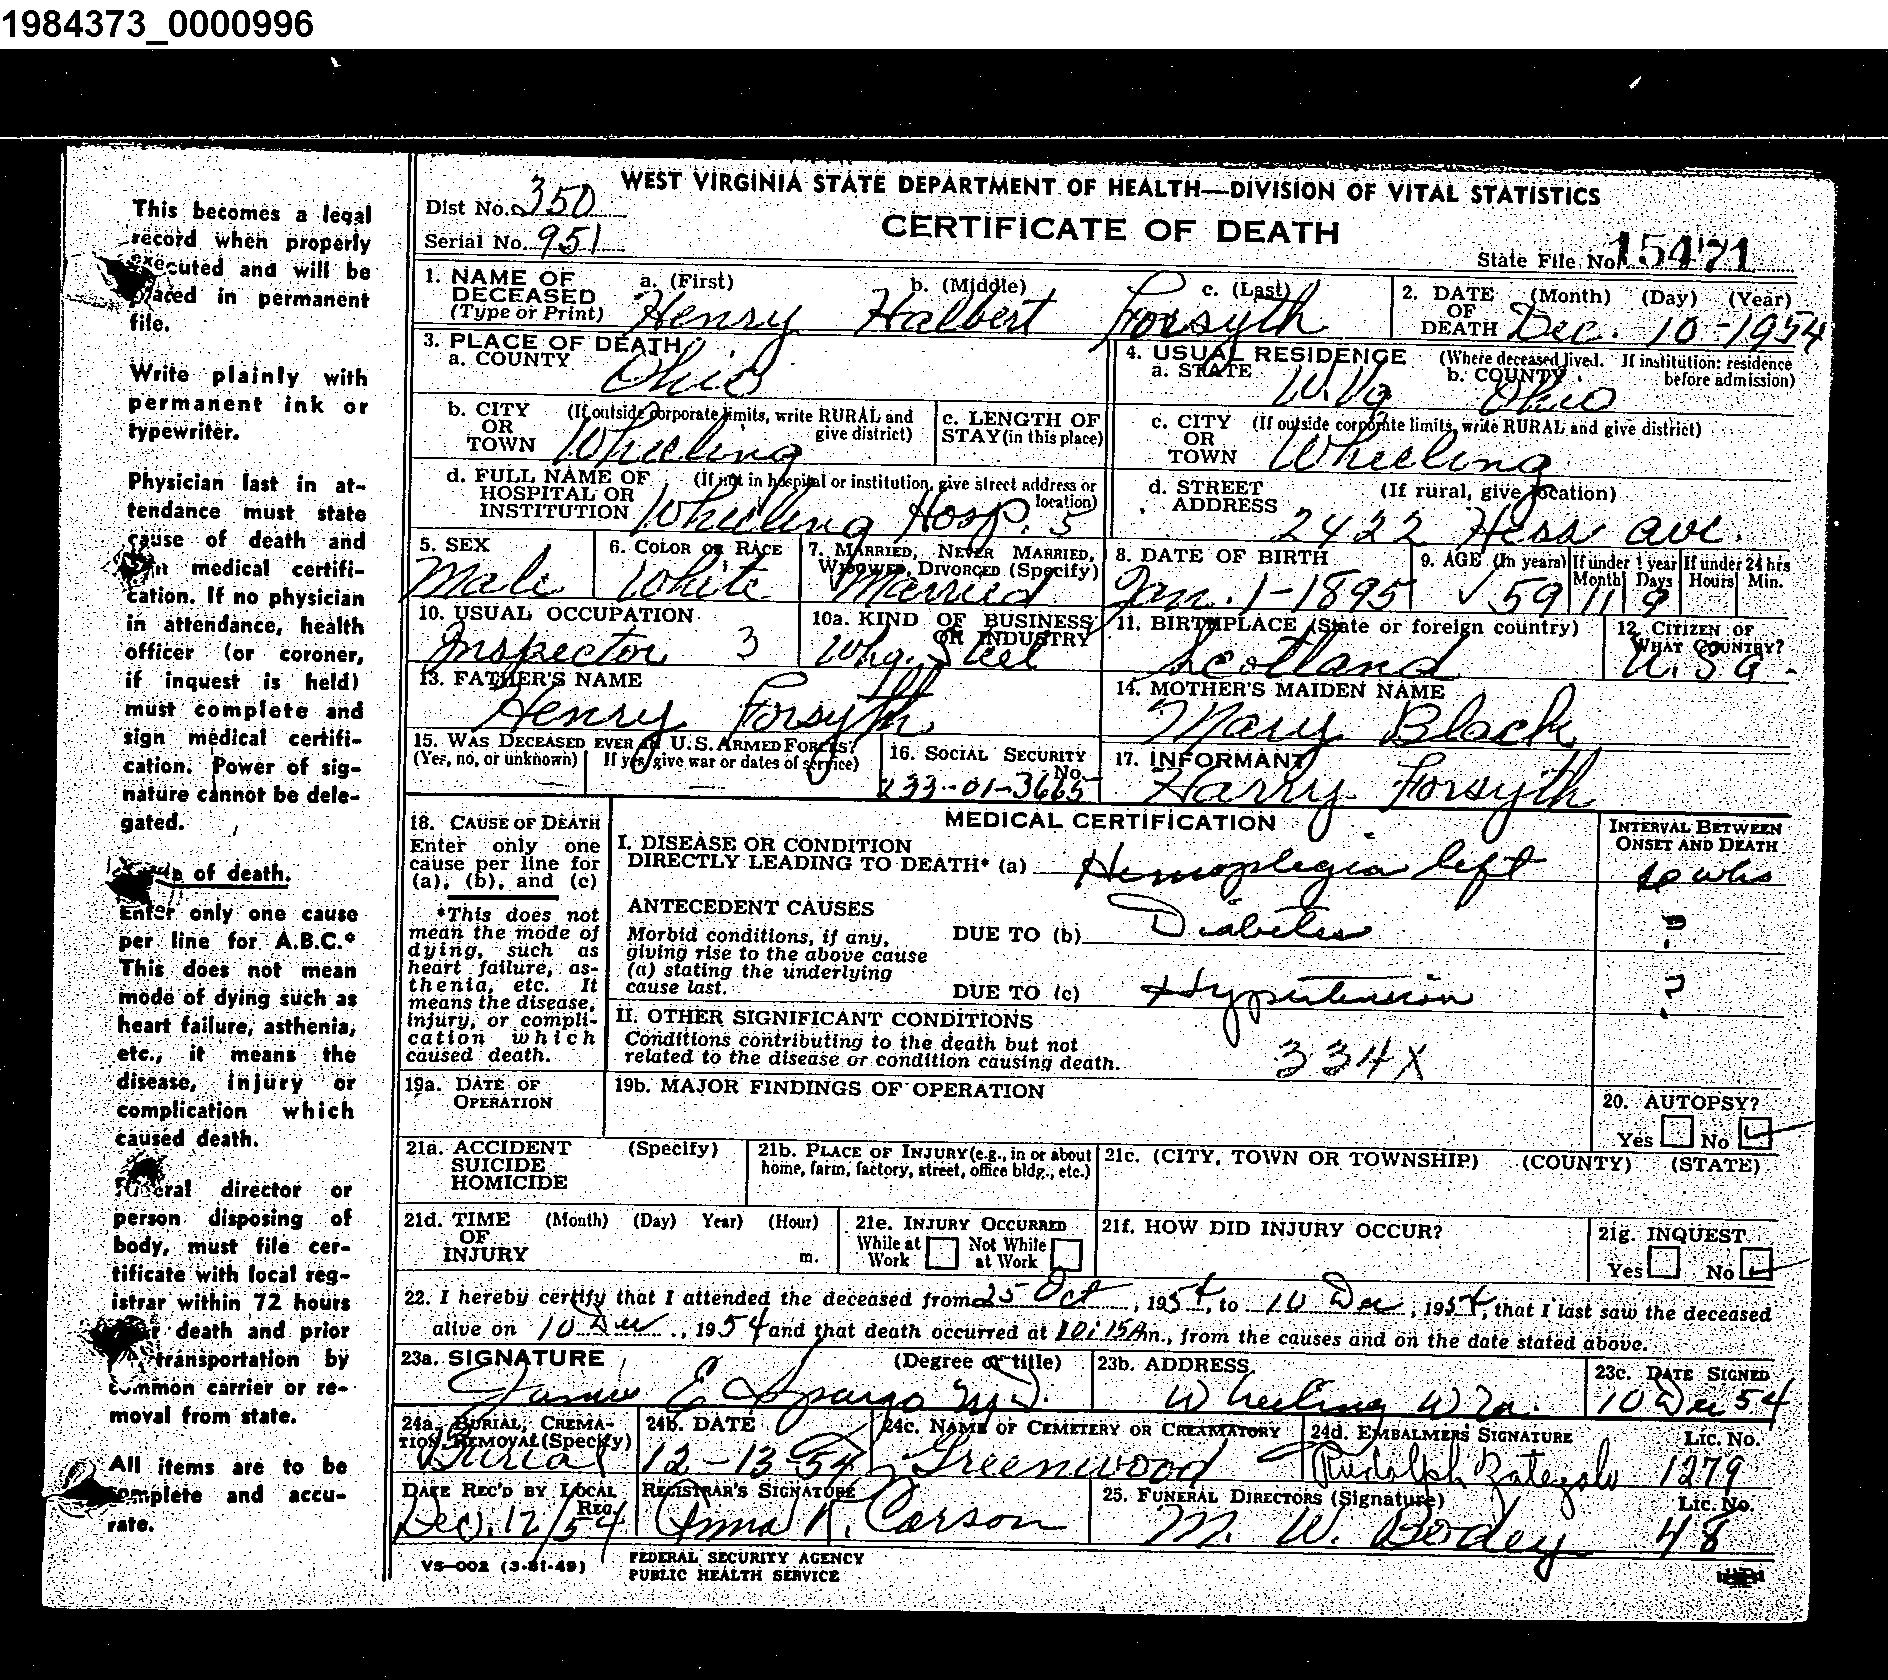 1984373_0000996
This becomes a legal
record when properly
executed and will be
placed in permanent
file.
Write plainly with
permanent ink or
typewriter.
Physician last in at-
tendance must state
cause of death and
medical certifi-
cation. If no physician
in attendance, health
officer (or coroner,
if inquest is held)
must complete and
sign medical certifi-
cation. Power of sig-
nature cannot be dele-
gated.
of death.
Enter only one cause
per line for A.B.C.*
This does not mean
mode of dying such as
heart failure, asthenia,
etc., it means the
disease, injury or
complication which
caused death.
Funeral director or
person disposing of
body, must file cer-
tificate with local reg-
istrar within 72 hours
death and prior
transportation by
common carrier or re-
moval from state.
All items are to be
complete and accu-
rate.
WEST VIRGINIA STATE DEPARTMENT OF HEALTH—DIVISION OF VITAL STATISTICS
Dist No. 350
CERTIFICATE OF DEATH
Serial No. 951
State File No. 15471
1. NAME OF DECEASED (Type or Print) a. (First) Henry b. (Middle) Halbert c. (Last) Forsyth
2. DATE OF DEATH (Month) (Day) (Year) Dec. 10-1954
3. PLACE OF DEATH
a. COUNTY Ohio
4. USUAL RESIDENCE (Where deceased lived. If institution: residence before admission)
a. STATE W. Va b. COUNTY Ohio
b. CITY OR TOWN (If outside corporate limits, write RURAL and give district) Wheeling
c. LENGTH OF STAY (in this place)
c. CITY OR TOWN (If outside corporate limits, write RURAL and give district) Wheeling
d. FULL NAME OF HOSPITAL OR INSTITUTION (If not in hospital or institution, give street address or location) Wheeling Hosp. 5
d. STREET ADDRESS (If rural, give location) 2422 Hess ave.
5. SEX Male
6. COLOR OR RACE White
7. MARRIED, NEVER MARRIED, WIDOWED, DIVORCED (Specify) Married
8. DATE OF BIRTH Jan. 1-1895
9. AGE (In years) 59 If under 1 year Month 11 Days 9 If under 24 hrs Hours Min.
10. USUAL OCCUPATION Inspector 3
10a. KIND OF BUSINESS OR INDUSTRY Whg. Steel
11. BIRTHPLACE (State or foreign country) Scotland
12. CITIZEN OF WHAT COUNTRY? U.S.a.
13. FATHER'S NAME Henry Forsyth
14. MOTHER'S MAIDEN NAME Mary Black
15. WAS DECEASED EVER IN U.S. ARMED FORCES?
(Yes, no, or unknown) — If yes, give war or dates of service) —
16. SOCIAL SECURITY No. 233-01-3665
17. INFORMANT Harry Forsyth
18. CAUSE OF DEATH
Enter only one
cause per line for
(a), (b), and (c)
*This does not
mean the mode of
dying, such as
heart failure, as-
thenia, etc. It
means the disease,
injury, or compli-
cation which
caused death.
MEDICAL CERTIFICATION
INTERVAL BETWEEN ONSET AND DEATH
I. DISEASE OR CONDITION
DIRECTLY LEADING TO DEATH* (a) Hemoplegia left wks
ANTECEDENT CAUSES
Morbid conditions, if any,
giving rise to the above cause
(a) stating the underlying
cause last.
DUE TO (b) Diabetes ?
DUE TO (c) Hypertension ?
II. OTHER SIGNIFICANT CONDITIONS
Conditions contributing to the death but not
related to the disease or condition causing death.
334X
19a. DATE OF OPERATION
19b. MAJOR FINDINGS OF OPERATION
20. AUTOPSY?
Yes No
21a. ACCIDENT SUICIDE HOMICIDE (Specify)
21b. PLACE OF INJURY (e.g., in or about home, farm, factory, street, office bldg., etc.)
21c. (CITY, TOWN OR TOWNSHIP) (COUNTY) (STATE)
21d. TIME OF INJURY (Month) (Day) Year) (Hour) m.
21e. INJURY OCCURRED
While at Work Not While at Work
21f. HOW DID INJURY OCCUR?
21g. INQUEST
Yes No
22. I hereby certify that I attended the deceased from 25 Oct, 1954, to 10 Dec, 1954, that I last saw the deceased
alive on 10 Dec, 1954 and that death occurred at 10:15 Am., from the causes and on the date stated above.
23a. SIGNATURE (Degree or title) James E Spargo M.D.
23b. ADDRESS Wheeling W Va.
23c. DATE SIGNED 10 Dec 54
24a. BURIAL, CREMA-
TION, REMOVAL (Specify) Burial
24b. DATE 12-13-54
24c. NAME OF CEMETERY OR CREAMATORY Greenwood
24d. EMBALMERS SIGNATURE Lic. No.
Rudolph 1279
DATE REC'D BY LOCAL REG. Dec. 12/54
REGISTRAR'S SIGNATURE Anna K. Carson
25. FUNERAL DIRECTORS (Signature) Lic. No.
M. W. Bodey 48
VS-002 (3-31-49)
FEDERAL SECURITY AGENCY
PUBLIC HEALTH SERVICE